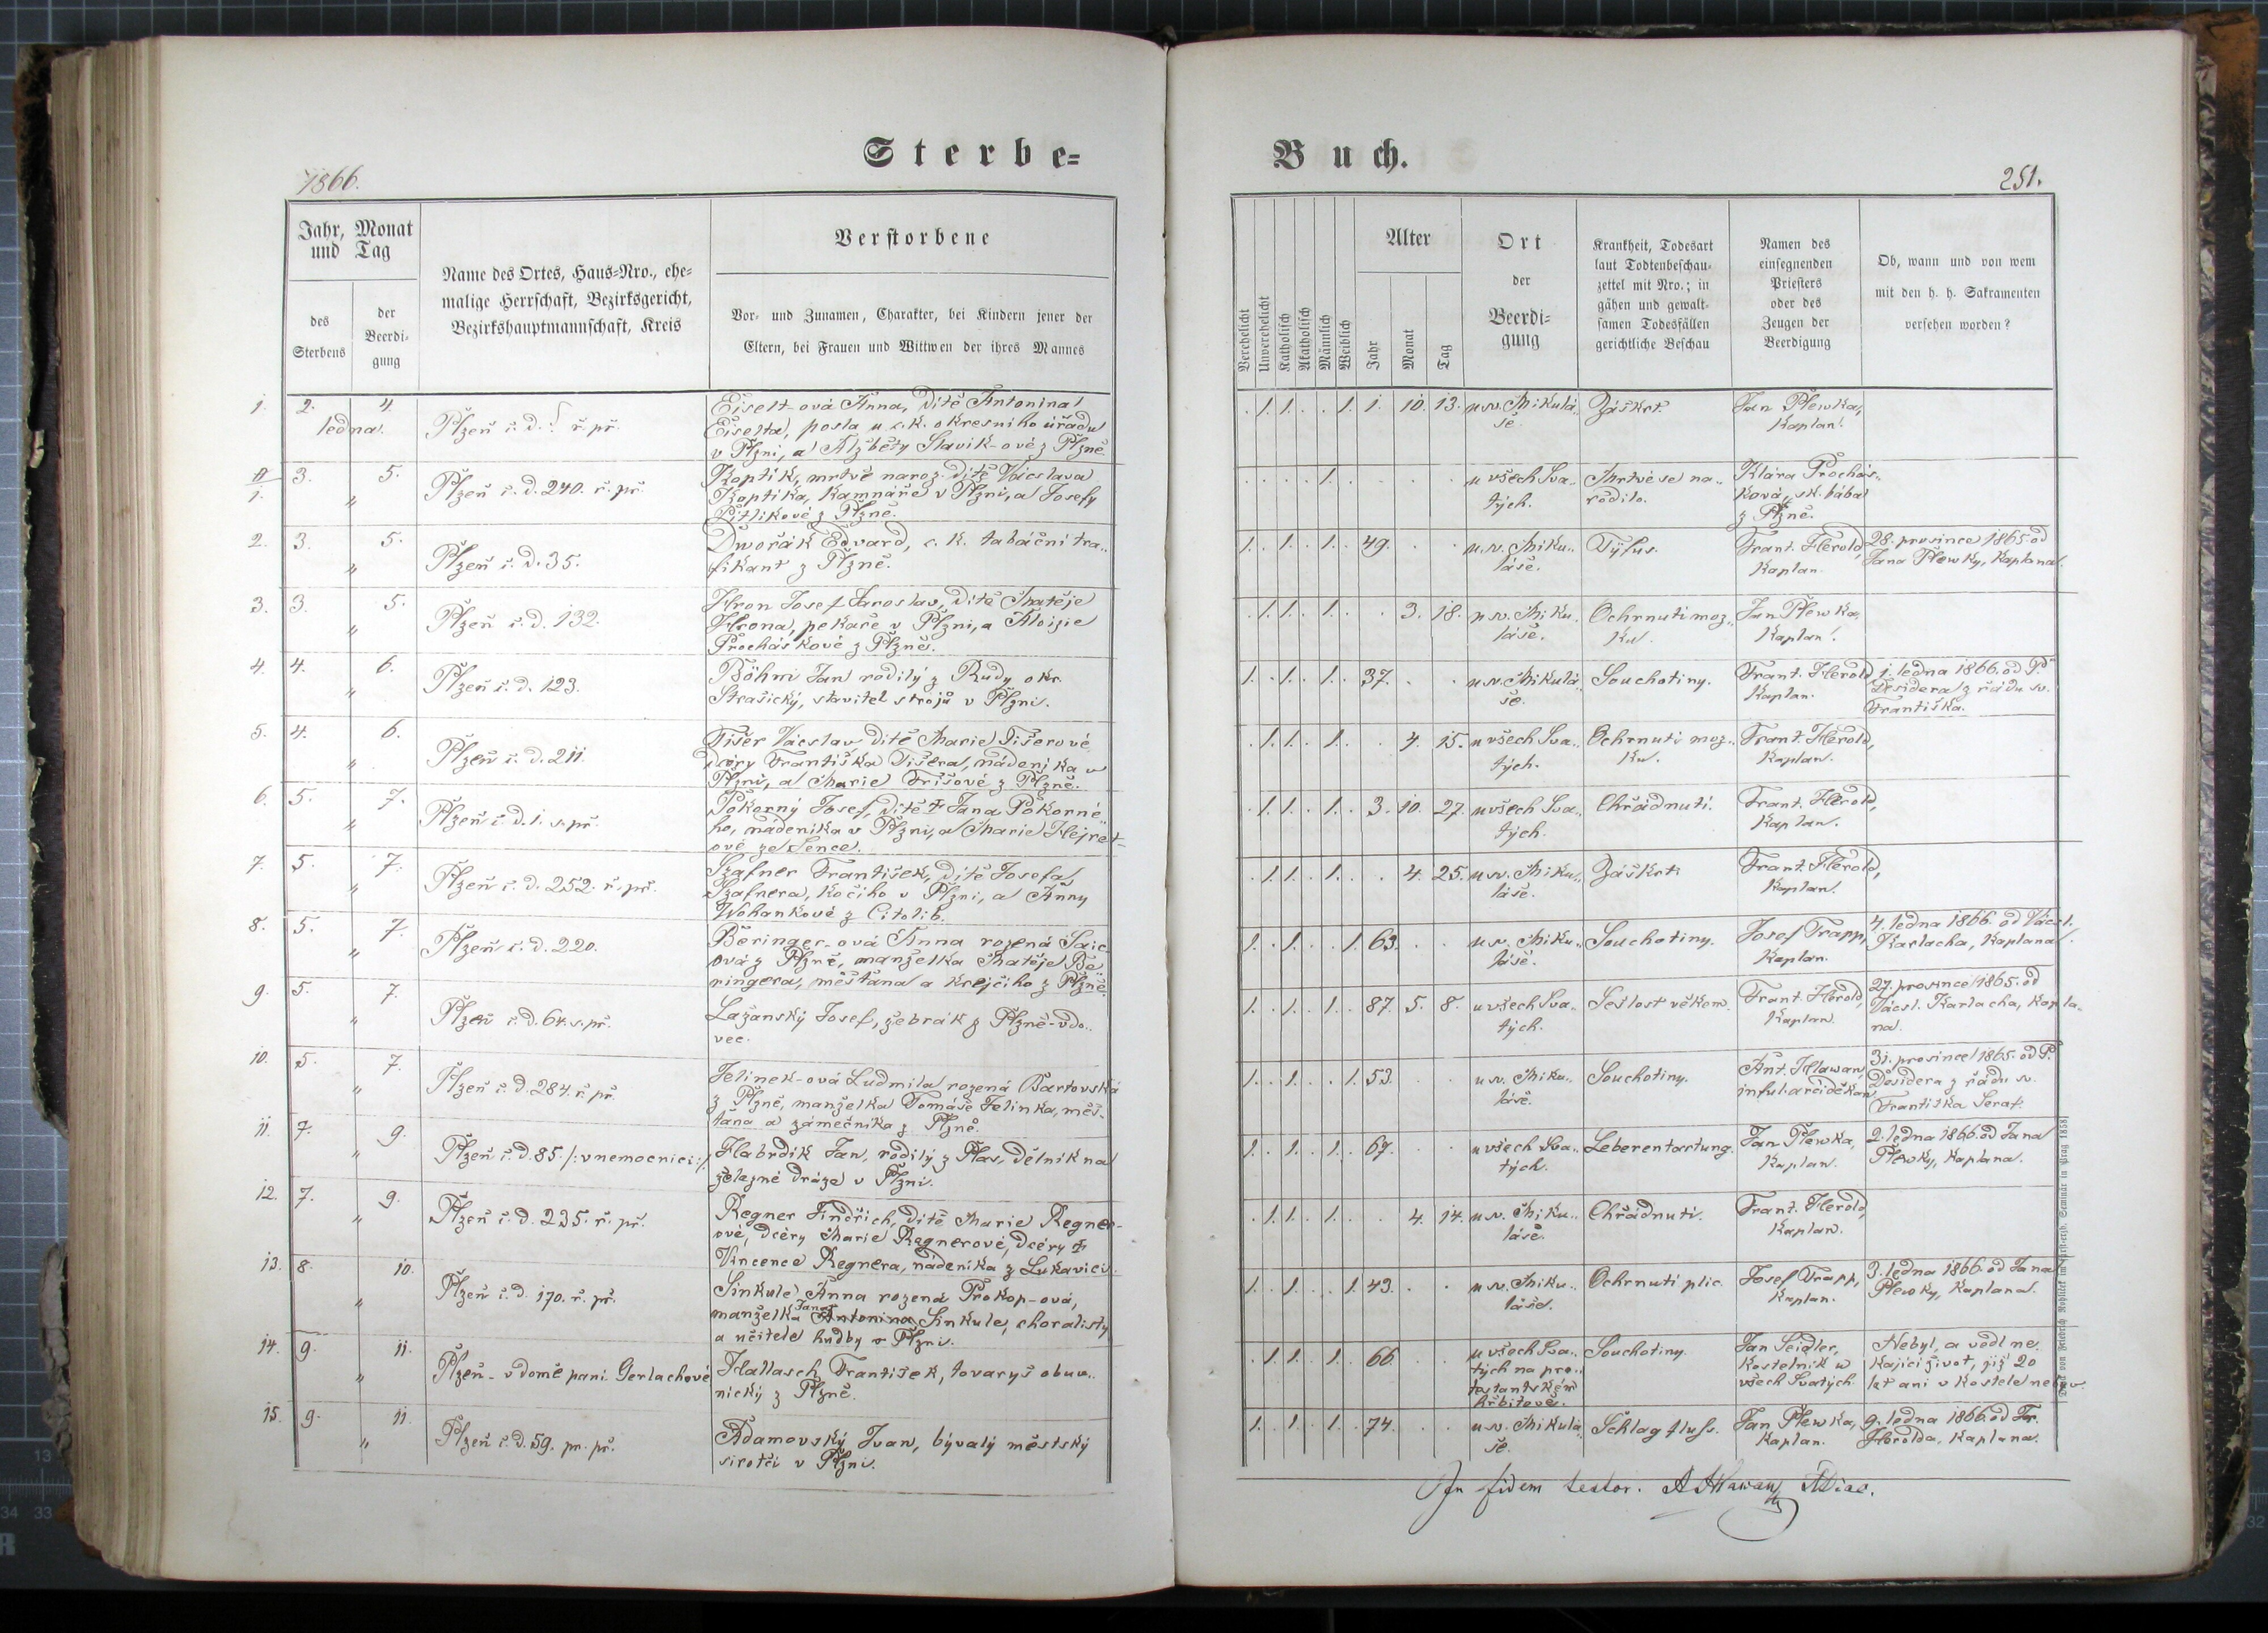 Sterbe=
Buch.
1866.
251.
Jahr, Monat
und Tag
des
Sterbens
der
Beerdi-
gung
Name des Ortes, Haus=Nro., ehe=
malige Herrschaft, Bezirksgericht,
Bezirkshauptmannschaft, Kreis
Verstorbene
Vor- und Zunamen, Charakter, bei Kindern jener der
Eltern, bei Frauen und Wittwen der ihres Mannes
Verehelicht
Unverehelicht
Katholisch
Akatholisch
Männlich
Weiblich
Alter
Jahr
Monat
Tag
Ort
der
Beerdi=
gung
Krankheit, Todesart
laut Todtenbeschau-
zettel mit Nro.; in
gähen und gewalt-
samen Todesfällen
gerichtliche Beschau
Namen des
einsegnenden
Priesters
oder des
Zeugen der
Beerdigung
Ob, wann und von wem
mit den h. h. Sakramenten
versehen worden?
1. 2. 4.
ledna. Plzeň č. d. ř. př.
Eiselt-ová Anna, dítě Antonína
Eiselta, posla u c. k. okresního úřadu
v Plzni, a Alžběty Slavík-ové z Plzně.
1. 1. 1. 1. 10. 13. u sv. Mikulá-
še. Záškrt. Jan Plewka,
Kaplan.
3. 5.
" Plzeň č. d. 240. ř. př.
Koptik, mrtvě naroz. dítě Václava
Koptika, Kamnáře v Plzni, a Josefy
Pitlikové z Plzně.
1. u všech Sva-
tých. Mrtvé se na-
rodilo. Klára Procház-
ková, zk. bába
z Plzně.
2. 3. 5.
" Plzeň č. d. 35.
Dwořák Edvard, c. k. tabáční tra-
fikant z Plzně.
1. 1. 1. 49. u sv. Miku-
láše. Tyfus. Frant. Herold,
Kaplan. 28. prosince 1865. od
Jana Plewky, Kaplana.
3. 3. 5.
" Plzeň č. d. 132.
Hron Josef Jaroslav, dítě Matěje
Hrona, pekaře v Plzni, a Aloisie
Procháskové z Plzně.
1. 1. 1. 3. 18. u sv. Miku-
láše. Ochrnutí moz-
ku. Jan Plewka,
Kaplan.
4. 4. 6.
" Plzeň č. d. 123.
Böhm Jan rodilý z Rudy okr.
Strašický, stavitel strojů v Plzni.
1. 1. 1. 37. u sv. Mikulá-
še. Souchotiny. Frant. Herold
Kaplan. 1. ledna 1866. od P.
Desidera z řádu sv.
Františka.
5. 4. 6.
" Plzeň č. d. 211.
Fišer Václav dítě Marie Fišerové
dcery Františka Fišera, nádeníka v
Plzni, a Marie Frišové z Plzně.
1. 1. 1. 4. 15. u všech Sva-
tých. Ochrnutí moz-
ku. Frant. Herold,
Kaplan.
6. 5. 7.
" Plzeň č. d. 1. s. př.
Pokorný Josef, dítě † Jana Pokorné-
ho, nádeníka v Plzni, a Marie Hejret-
ové ze Sence.
1. 1. 1. 3. 10. 27. u všech Sva-
tých. Chřádnutí. Frant. Herold,
Kaplan.
7. 5. 7.
" Plzeň č. d. 252. ř. př.
Szafner František, dítě Josefa
Szafnera, kočího v Plzni, a Anny
Wohankové z Citolib.
1. 1. 1. 4. 25. u sv. Miku-
láše. Záškrt. Frant. Herold,
Kaplan.
8. 5. 7.
" Plzeň č. d. 220.
Beringer-ová Anna rozená Saic-
ová z Plzně, manželka Matěje Be-
ringera, měšťana a krejčího z Plzně.
1. 1. 1. 63. u sv. Miku-
láše. Souchotiny. Josef Trapp,
Kaplan. 4. ledna 1866. od Václ.
Karlacha, Kaplana.
9. 5. 7.
" Plzeň č. d. 64. s. př.
Lažanský Josef, žebrák z Plzně-vdo-
vec.
1. 1. 1. 87. 5. 8. u všech Sva-
tých. Sešlost věkem. Frant. Herold,
Kaplan. 27. prosince 1865. od
Václ. Karlacha, Kapla-
na.
10. 5. 7.
" Plzeň č. d. 284. ř. př.
Jelinek-ová Ludmila rozená Bartovská
z Plzně, manželka Tomáše Jelinka, měš-
ťana a zámečníka z Plzně.
1. 1. 1. 53. u sv. Miku-
láše. Souchotiny. Ant. Hlawan,
inful. arciděkan. 31. prosince 1865. od P.
Desidera z řádu sv.
Františka Seraf.
11. 7. 9.
" Plzeň č. d. 85. /: v nemocnici :/
Habrdik Jan, rodilý z Plas, dělník na
železné dráze v Plzni.
1. 1. 1. 67. u všech Sva-
tých. Leberentartung. Jan Plewka,
Kaplan. 2. ledna 1866. od Jana
Plewky, Kaplana.
12. 7. 9.
" Plzeň č. d. 235. ř. př.
Regner Jindřich, dítě Marie Regner-
ové, dcéry Marie Regnerové, dcéry †
Vincence Regnera, nádeníka z Lukavice.
1. 1. 1. 4. 14. u sv. Miku-
láše. Chřádnutí. Frant. Herold,
Kaplan.
13. 8. 10.
" Plzeň č. d. 170. ř. př.
Sinkule Anna rozená Prokop-ová,
manželka Jana Antonina Sinkule, choralisty
a učitele hudby v Plzni.
1. 1. 1. 43. u sv. Miku-
láše. Ochrnutí plic. Josef Trapp,
Kaplan. 3. ledna 1866. od Jana
Plewky, Kaplana.
14. 9. 11.
" Plzeň - v domě paní Gerlachové
Hallasch František, tovaryš obuv-
nický z Plzně.
1. 1. 1. 66. u všech Sva-
tých na pro-
testantském
hřbitově. Souchotiny. Jan Seidler,
Kostelník u
všech Svatých. Nebyl, a vedl ne-
kající život, již 20
let ani v kostele nebyv.
15. 9. 11.
" Plzeň č. d. 59. pr. př.
Adamovský Ivan, bývalý městský
sirotčí v Plzni.
1. 1. 1. 74. u sv. Mikulá-
še. Schlagfluß. Jan Plewka,
Kaplan. 9. ledna 1866. od Fr.
Herolda, Kaplana.
In fidem testor. A Hlawan
Druck von Friedrich Rohliček im fürsterzb. Seminär in Prag 1858.